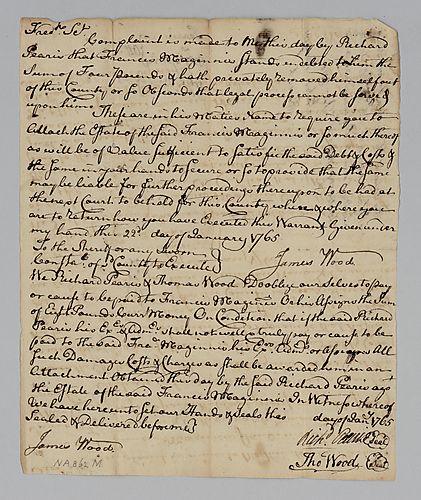 Fredk Sct
Complaint is made to Me this day by Richard
Pearis that Francis Maginnis Stands indebted to him the
Sum of Four pounds & hath privately removed himself out
of this County or so Absconds that legal process cannot be served
upon him. These are in his Maties Name to require you to
Attach the Estate of the said Francis Maginnis or so much thereof
as will be of Value Sufficient to satisfie the said Debt & Costs &
the same in your hands to Secure or so to provide that the same
may be liable for further proceedings thereupon to be had at
the next Court to be held for this County when & where you
are to return how you have Executed this Warrant Given under
my hand this 22d day of January 1765
To the Sheriff or any Sworn
Constable of sd County to Execute
James Wood
We Richard Pearis & Thomas Wood Do oblige our selves to pay
or cause to be paid to Francis Maginnis Or his Assigns the Sum
of Eight Pounds Curr Money On Condition that if the said Richard
Pearis his Exrs Admrs Shall not well & truly pay or cause to be
paid to the said Fras Maginnis his Exrs Admrs or Assigns All
such Damages Costs & Charges as shall be awarded him in an
Attachment Obtained this day by the said Richard Pearis agt
the Estate of the said Francis Maginnis In Witness whereof
We have hereunto set our Hands & Seals this day of Jany 1765
Sealed & Delivered before me
James Wood
Richd Pearis Seal
Thos Wood Seal